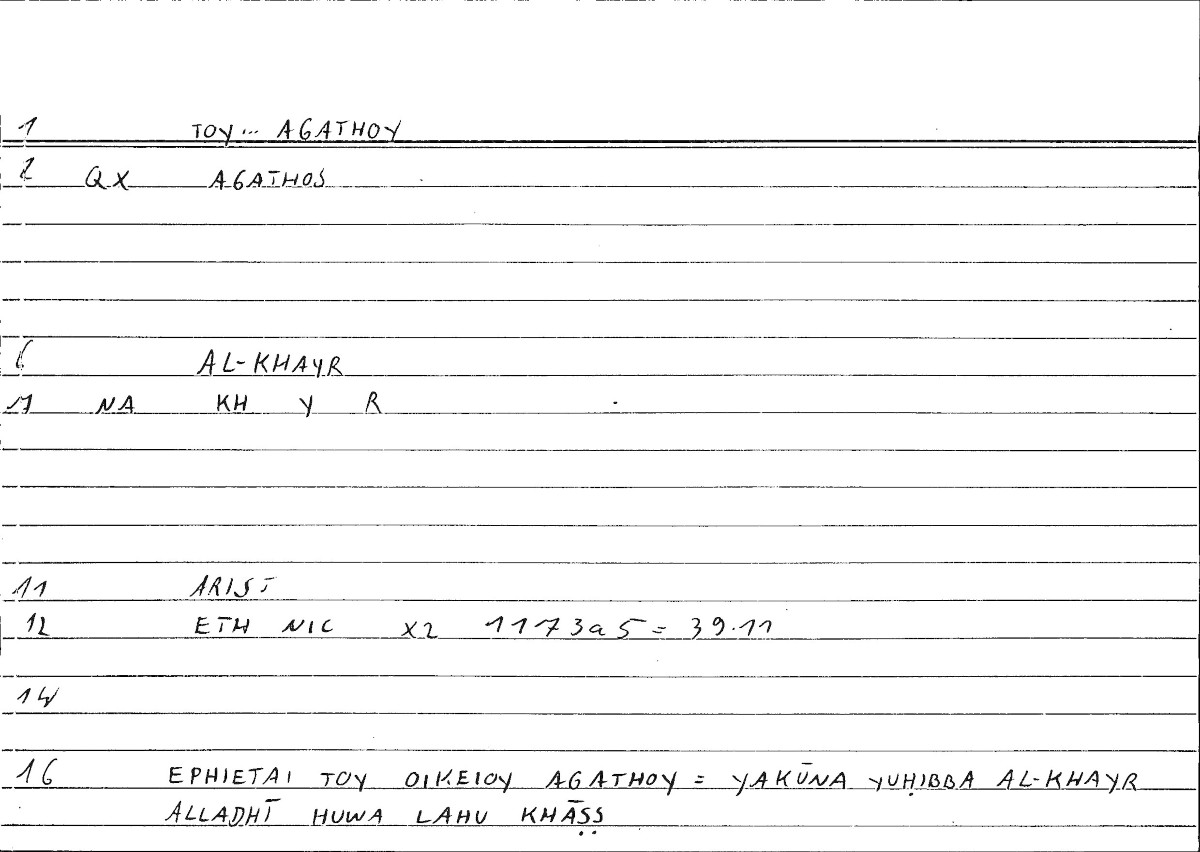 1 TOY... AGATHOY
2 QX AGATHOS
6 AL-KHAYR
7 NA KH Y R
11 ARIST
12 ETH NIC X2 1173a5 = 39.11
14
16 EPHIETAI TOY OIKEIOY AGATHOY = YAKŪNA YUḤIBBA AL-KHAYR
ALLADHĪ HUWA LAHU KHĀṢṢ